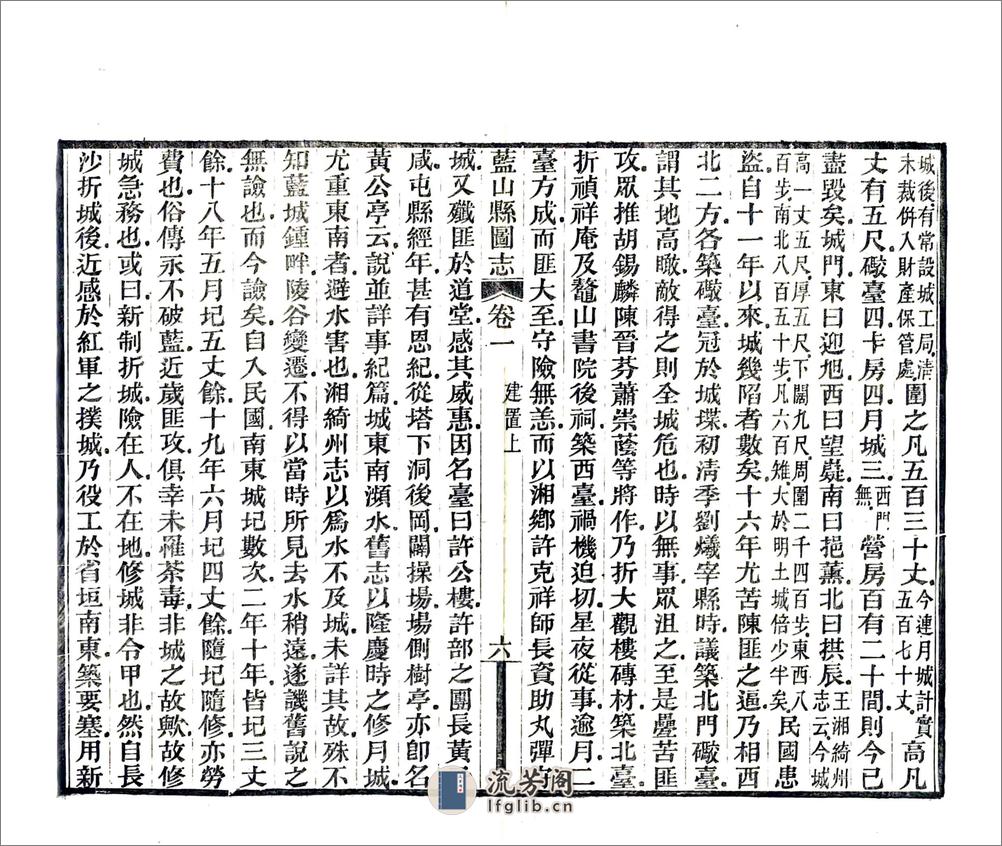 城後有常設城工局清
末裁併入財產保管處
圍之凡五百三十丈
今連月城計實
五百七十丈
高凡
丈有五尺礮臺四卡房四月城三
西門
無
營房百有二十間則今已
盡毀矣城門東曰迎旭西曰望嶷南曰挹薰北曰拱辰
王湘綺州
志云今城
高一丈五尺厚五尺下闊九尺周圍二千四百步東西八
百步南北八百五十步凡六百雉大於明土城倍少半矣
民國患
盜自十一年以來城幾陷者數矣十六年尤苦陳匪之逼乃相西
北二方各築礮臺冠於城堞初清季劉爔宰縣時議築北門礮臺
謂其地高瞰敵得之則全城危也時以無事眾沮之至是疊苦匪
攻眾推胡錫麟陳晉芬蕭崇蔭等將作乃折大觀樓磚材築北臺
折禎祥庵及鼇山書院後祠築西臺禍機迫切星夜從事逾月二
臺方成而匪大至守險無恙而以湘鄉許克祥師長資助丸彈守
藍山縣圖志 卷一 建置上 六
城又殲匪於道堂感其威惠因名臺曰許公樓許部之團長黃
咸屯縣經年甚有恩紀從塔下洞後岡闢操場場側樹亭亦卽名
黃公亭云說並詳事紀篇城東南瀕水舊志以隆慶時之修月城
尤重東南者避水害也湘綺州志以爲水不及城未詳其故殊不
知藍城鍾畔陵谷變遷不得以當時所見去水稍遠遂譏舊說之
無譣也而今譣矣自入民國南東城圮數次二年十年皆圮三丈
餘十八年五月圮五丈餘十九年六月圮四丈餘隨圮隨修亦勞
費也俗傳永不破藍近歲匪攻俱幸未羅荼毒非城之故歟故修
城急務也或曰新制折城險在人不在地修城非令甲也然自長
沙折城後近感於紅軍之撲城乃役工於省垣南東築要塞用新
流芳阁
lfglib.cn